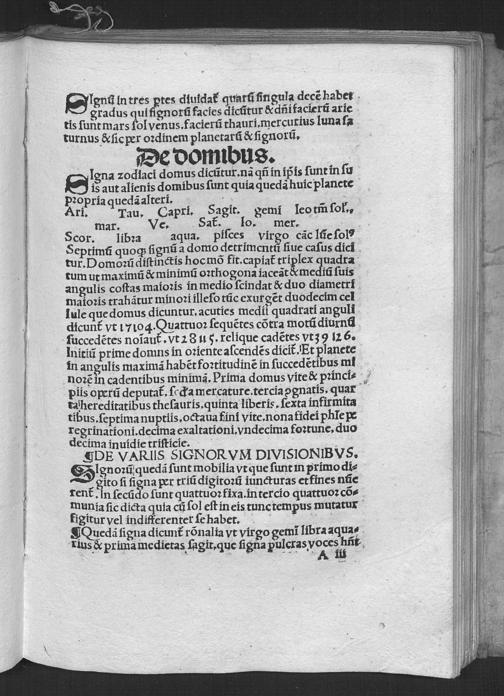 SIgnū in tres ptes diuidat̄ quarū singula decē habet
gradus qui signorū facies dicūtur & dñi facierū arie
tis sunt mars sol venus. facierū thauri. mercurius luna sa
turnus & sic per ordinem planetarū & signorū.
De domibus.
SIgna zodiaci domus dicūtur. nā qñ in ip̄is sunt in su
is aut alienis domibus sunt quia quedā huic planete
propria quedā alteri.
Ari. Tau. Capri. Sagit. gemi leo tm̄ sol⁹.
mar. Ve. Sat̄. Io. mer.
Scor. libra aqua. pisces virgo cāc lūe sol⁹
Septimū quoq; signū a domo detrimentū siue casus dici
tur. Domorū distinctis hoc mō fit. capiat̄ triplex quadra
tum ut maximū & minimū orthogona iaceāt & mediū suis
angulis costas maioris in medio scindat & duo diametri
maioris trahātur minori illeso tūc exurgēt duodecim cel
lule que domus dicuntur. acuties medii quadrati anguli
dicunt̄ vt 1 7 10 4. Quattuor sequētes cōtra motū diurnū
succedētes noīant̄. vt 2 8 11 5. relique cadētes vt 3 9 12 6.
Initiū prime domus in oriente ascendēs dicit̄. Et planete
in angulis maximā habēt fortitudinē in succedētibus mi
norē in cadentibus minimā. Prima domus vite & princi-
piis operū deputat̄. scd̄a mercature. tercia ꝓgnatis. quar
ta hereditatibus thesauris. quinta liberis. sexta infirmita
tibus. septima nuptiis. octaua fini vite. nona fidei ph̄ie pe
regrinationi. decima exaltationi. vndecima fortune, duo
decima inuidie tristicie.
¶DE VARIIS SIGNORVM DIVISIONIBVS.
SIgnorū quedā sunt mobilia vt que sunt in primo di-
gito si signa per triū digitorū iuncturas et fines nūe
rent̄. In secūdo sunt quattuor fixa. in tercio quattuor cō-
munia sic dicta quia cū sol est in eis tunc tempus mutatur
figitur vel indifferenter se habet.
¶Quedā signa dicunt̄ rōnalia vt virgo gemī libra aqua-
rius & prima medietas sagit. que signa pulcras voces hn̄t
A iii